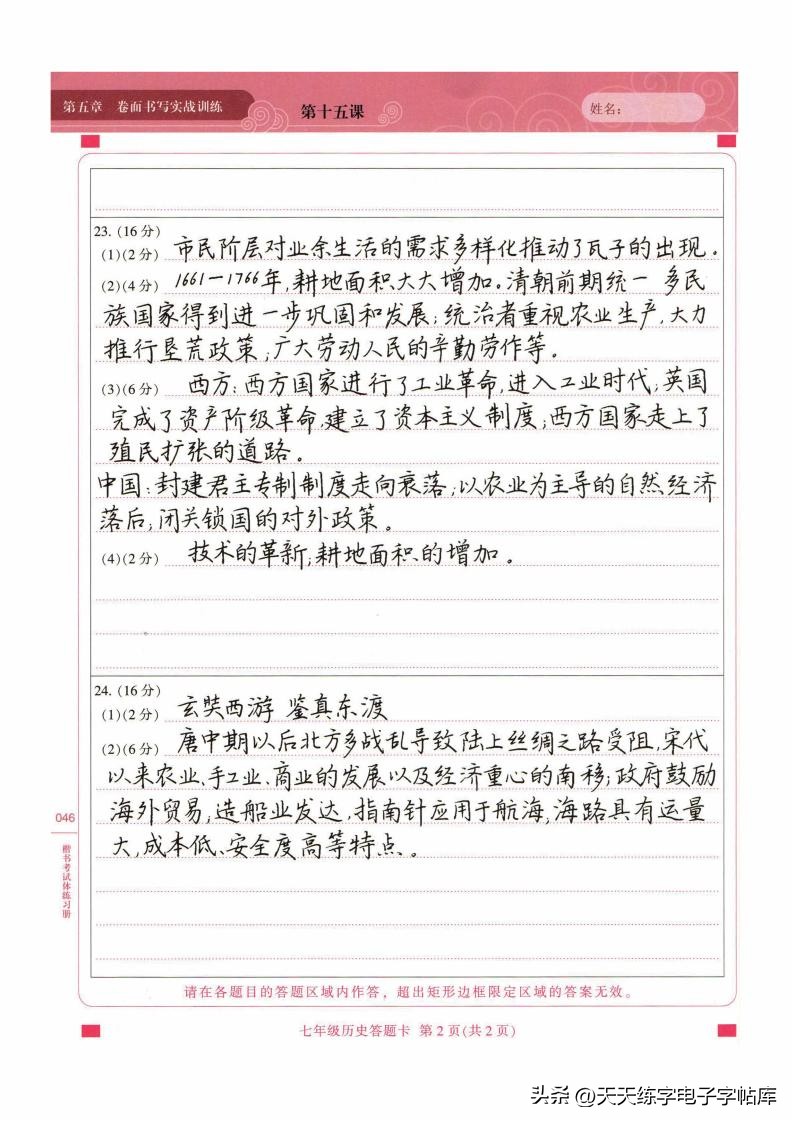 第五章 卷面书写实战训练
第十五课
姓名：
23. (16分)
(1)(2分) 市民阶层对业余生活的需求多样化推动了瓦子的出现。
(2)(4分) 1661—1766年,耕地面积大大增加。清朝前期统一 多民
族国家得到进一步巩固和发展;统治者重视农业生产,大力
推行垦荒政策;广大劳动人民的辛勤劳作等。
(3)(6分) 西方:西方国家进行了工业革命,进入工业时代;英国
完成了资产阶级革命,建立了资本主义制度;西方国家走上了
殖民扩张的道路。
中国:封建君主专制制度走向衰落;以农业为主导的自然经济
落后;闭关锁国的对外政策。
(4)(2分) 技术的革新;耕地面积的增加。
24. (16分)
(1)(2分) 玄奘西游 鉴真东渡
(2)(6分) 唐中期以后北方多战乱导致陆上丝绸之路受阻,宋代
以来农业、手工业、商业的发展以及经济重心的南移;政府鼓励
海外贸易;造船业发达,指南针应用于航海;海路具有运量
大,成本低、安全度高等特点。
046
楷书考试体练习册
请在各题目的答题区域内作答，超出矩形边框限定区域的答案无效。
七年级历史答题卡 第2页(共2页)
头条 @天天练字电子字帖库